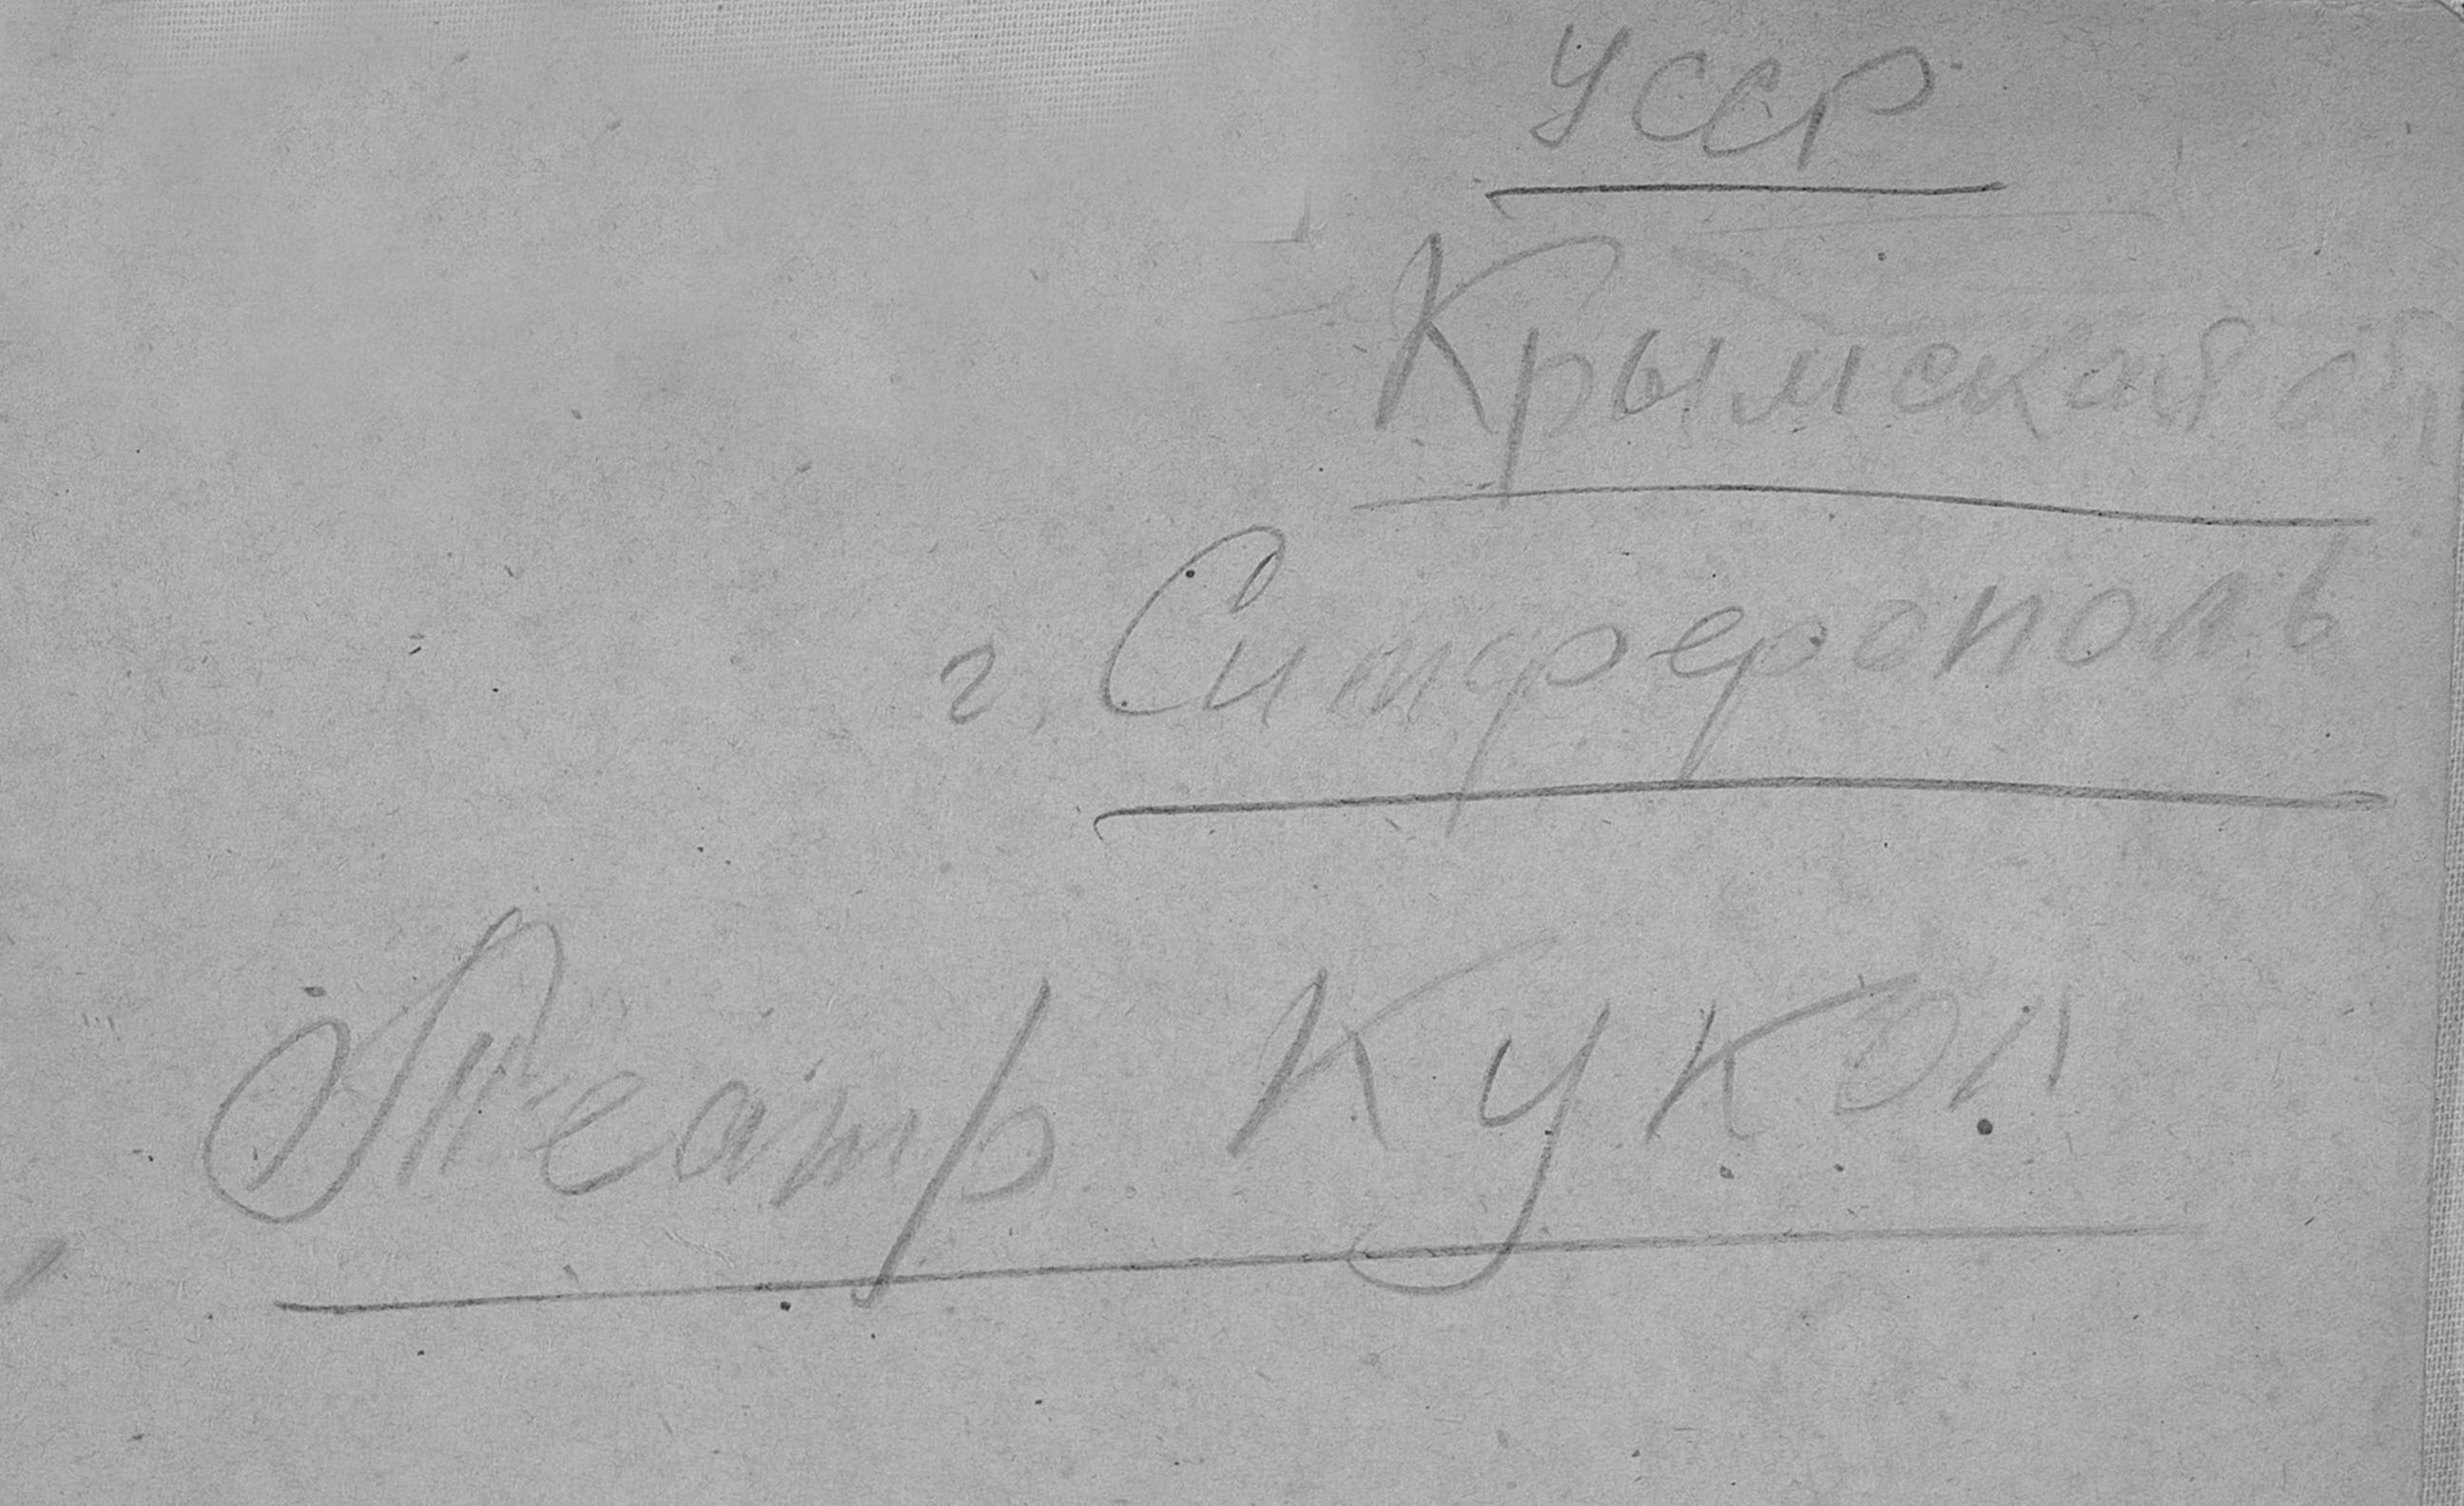 УССР
Крымская обл
г. Симферополь
Театр Кукол